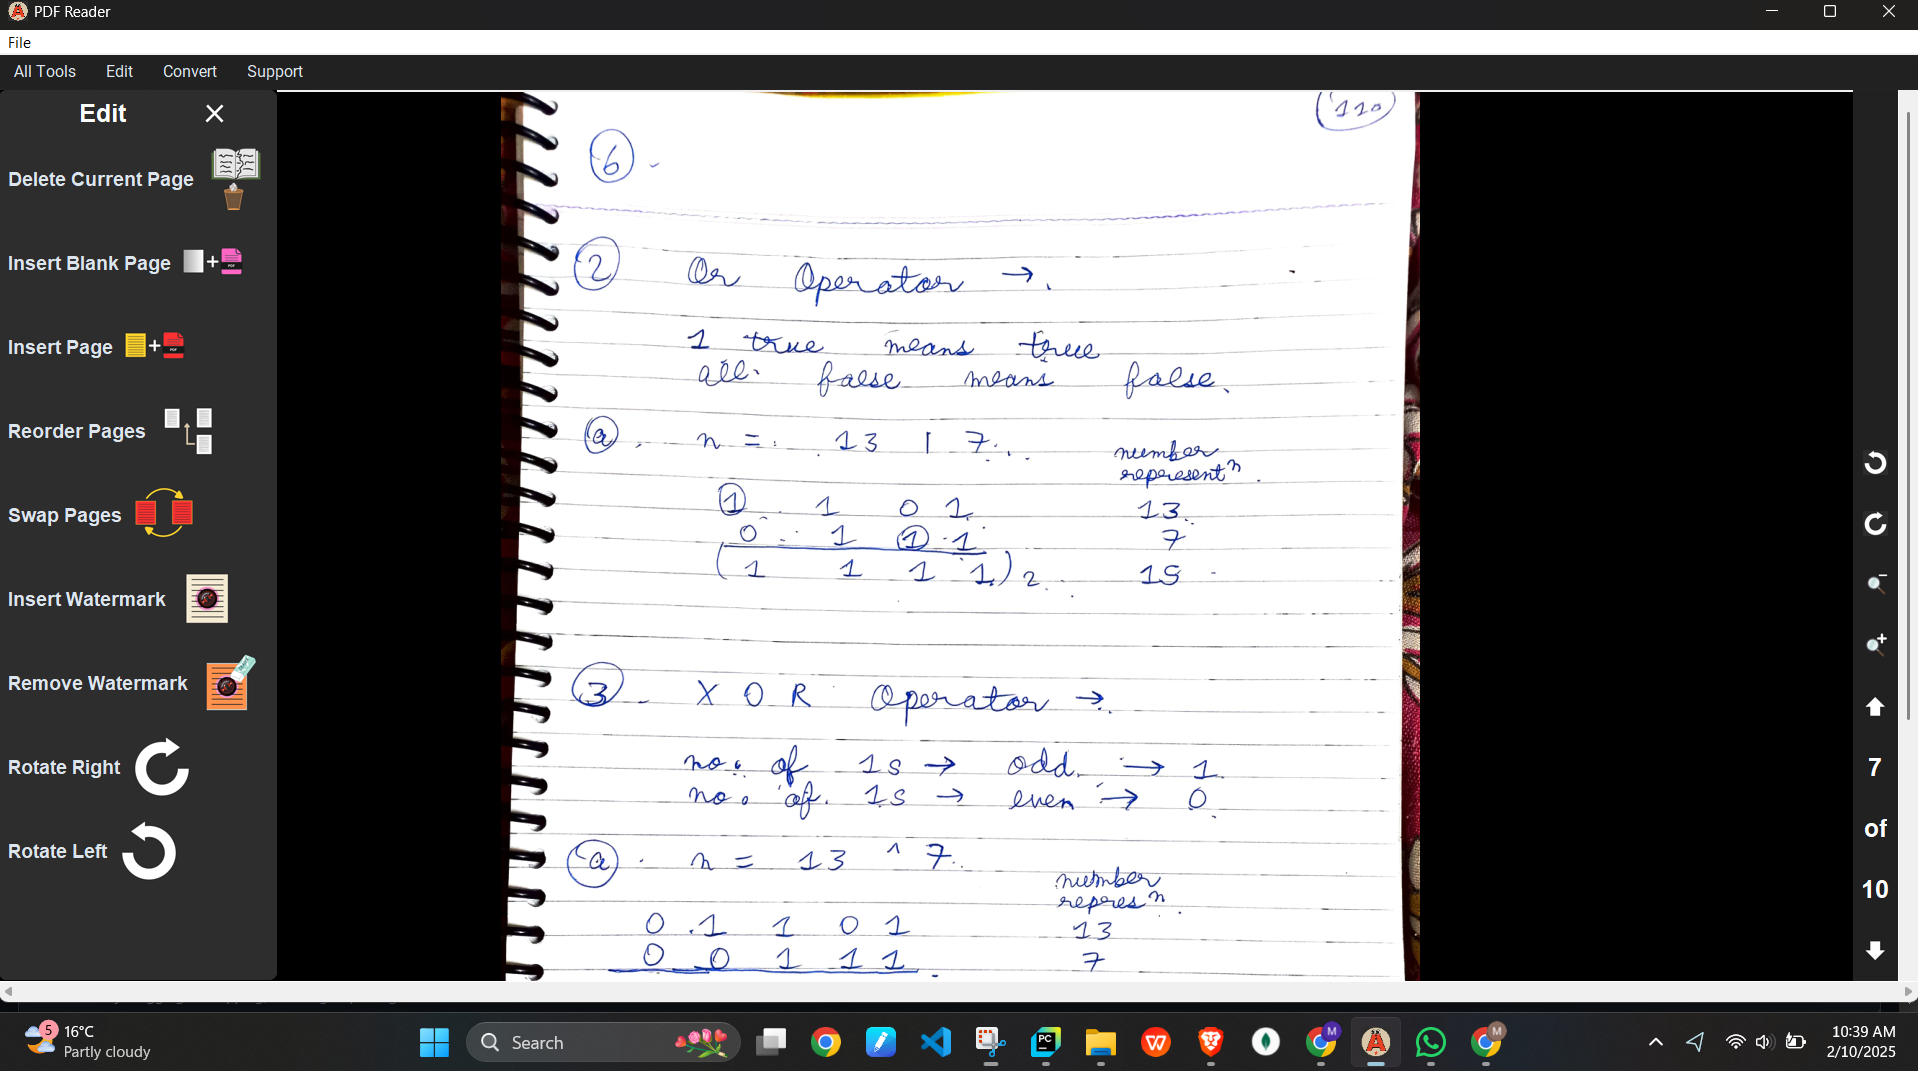 PDF Reader
File
All Tools Edit Convert Support
Edit
Delete Current Page
Insert Blank Page
Insert Page
Reorder Pages
Swap Pages
Insert Watermark
Remove Watermark
Rotate Right
Rotate Left
110
6
2 Or Operator →
1 true means true
all false means false.
a. n = 13 | 7
number
representⁿ
1 1 0 1 13
0 1 1 1 7
(1 1 1 1)2 15
3 - X O R Operator →
no. of 1s → odd → 1
no. of 1s → even → 0
a. n = 13 ^ 7
number
represⁿ
0 1 1 0 1 13
0 0 1 1 1 7
7
of
10
5
16°C
Partly cloudy
Search
PC
M
M
10:39 AM
2/10/2025